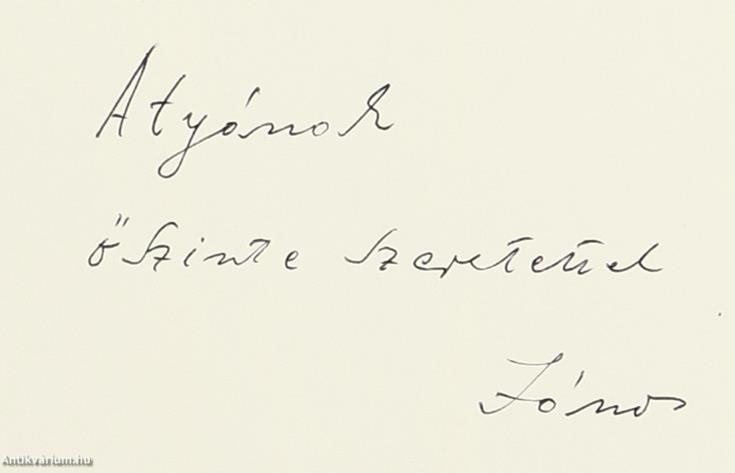 Atyának
őszinte szeretettel
János
Antikvárium.hu